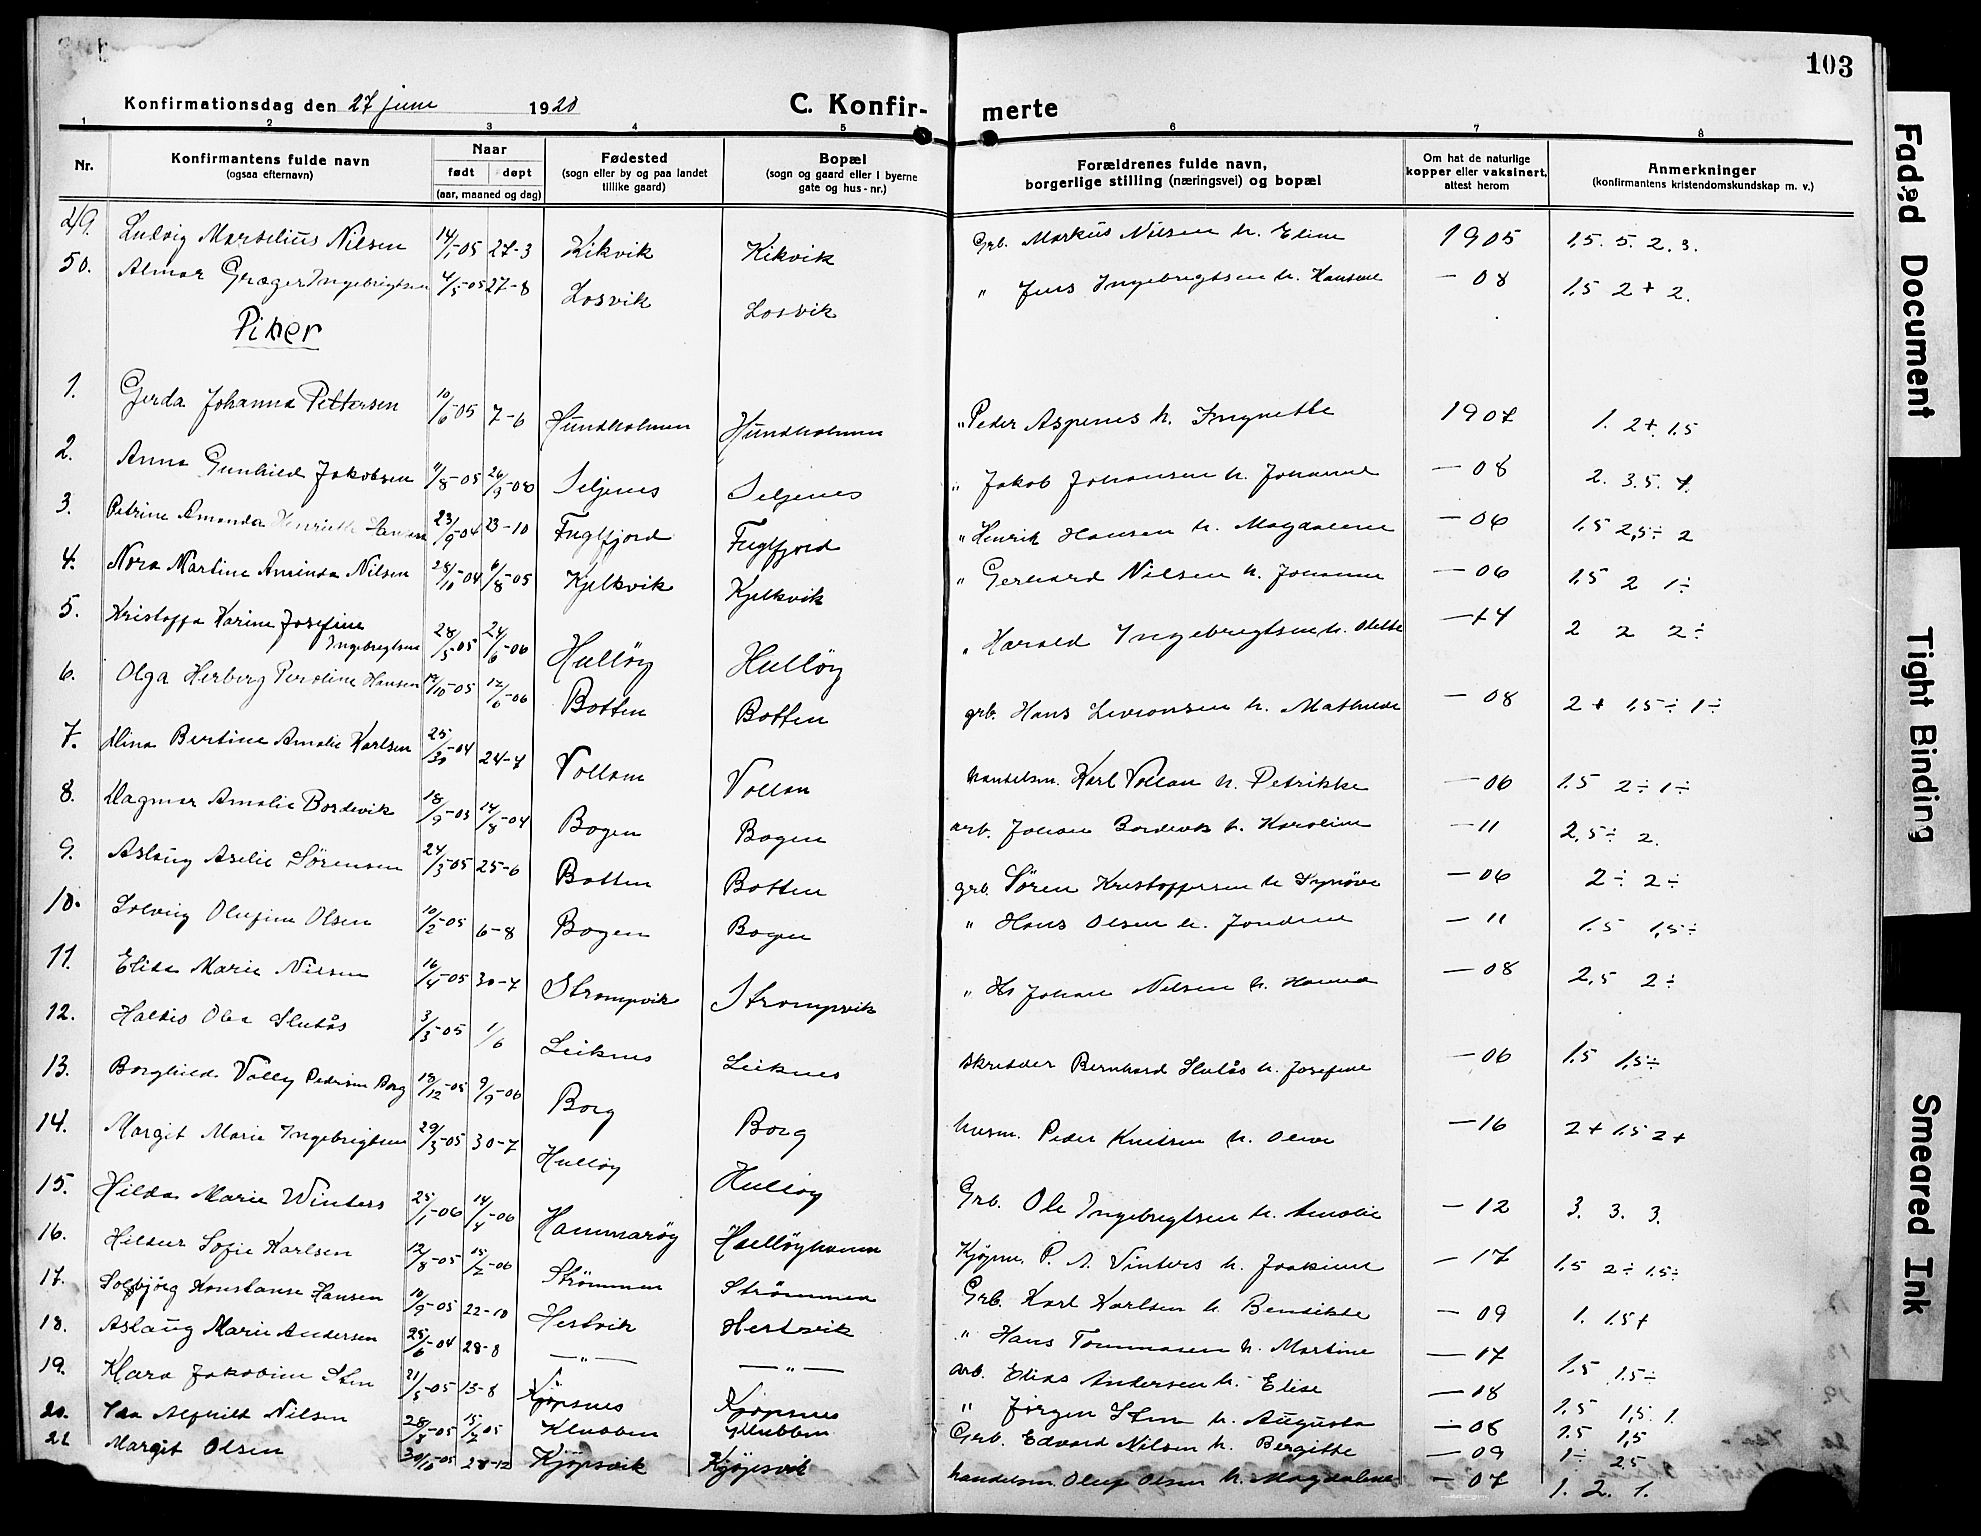 103
Konfirmationsdag den 27 juni 1920 C. Konfirmerte
1 2 3 4 5 6 7 8
Nr. Konfirmantens fulde navn (ogsaa efternavn) Naar født døpt (aar, maaned og dag) Fødested (sogn eller by og paa landet tillike gaard) Bopæl (sogn og gaard eller i byerne gate og hus-nr.) Forældrenes fulde navn, borgerlige stilling (næringsvei) og bopæl Om hat de naturlige kopper eller vaksinert, attest herom Anmerkninger (konfirmantens kristendomskundskap m. v.)
49. Ludvig Marselius Nilsen 14/1-05 27-3 Kikvik Kikvik Grb. Markus Nilsen h. Eline 1905 1,5. 5. 2. 3.
50. Almar Græger Ingebrigtsen 4/5-05 27-8 Losvik Losvik " Jens Ingebrigtsen h. Hansine - 08 1,5 2+ 2.
Piker
1. Gerda Johanna Pettersen 10/6-05 7-6 Hundholmen Hundholmen " Peder Aspenes h. Ingnette 1907 1. 2+. 1.5
2. Anna Gunhild Jakobsen 9/8-05 26/9-08 Seljenes Seljenes " Jakob Johansen h. Johanne - 08 2. 3.5. 4.
3. Petrine Amanda Henriette Hansen 23/9-04 23-10 Fuglfjord Fuglfjord " Henrik Hansen h. Magdalene - 06 1,5 2,5÷ 2
4. Nora Martine Aminda Nilsen 28/11-04 6/8-05 Kjelkvik Kjelkvik " Gerhard Nilsen h. Johanne - 06 1,5 2 1÷
5. Kristoffa Karine Josefine Ingebrigtsen 28/5-05 24/6-06 Hulløy Hulløy " Harald Ingebrigtsen h. Odette - 14 2 2 2÷
6. Olga Herberg Peroline Hansen 19/10-05 12/6-06 Botten Botten grb. Hans Levronsen h. Mathilde - 08 2+ 1,5÷ 1÷
7. Mina Bertine Amalie Karlsen 25/30-04 24-7 Vollan Vollan handelsm. Karl Vollan h. Petrikke - 06 1.5 2÷ 1÷
8. Dagmar Amalie Bordevik 18/9-03 14/8-04 Bogen Bogen arb. Johan Bordevik h. Karoline - 11 2,5÷ 2.
9. Aslaug Aselie Sörensen 24/3-05 25-6 Botten Botten grb. Sören Kristoffersen h. Synöve - 06 2÷ 2÷
10. Solveig Olufine Olsen 10/2-05 6-8 Bogen Bogen " Hans Olsen h. Jondine - 11 1.5 1,5÷
11. Elida Marie Nilsen 16/4-05 30-7 Strompvik Strompvik " Hs Johan Nilsen h. Hanna - 08 2,5 2÷
12. Haldis Olea Slutås 3/3-05 1/6 Leiknes Leiknes skredder Bernhard Slutås h. Josefine - 06 1,5 1,5÷
13. Borghild Vally Pedersen Borg 18/12-05 9/9-06 Borg Borg husm. Peder Knutsen h. Oline - 16 2+ 1.5 2+
14. Margit Marie Ingebrigtsen 29/3-05 30-7 Hulløy Hulløy Grb. Ole Ingebrigtsen h. Amalie - 12 3. 3. 3.
15. Hilda Marie Winters 25/1-06 14/4-06 Hammarøy Hulløyhamn Kjøpm. P. A. Vinters h. Joakime - 17 1.5 2÷ 1.5÷
16. Hildur Sofie Karlsen 12/8-05 15/2-06 Strömmen Strömmen Grb. Karl Karlsen h. Bendikte - 09 1. 1.5+
17. Solbjörg Konstanse Hansen 10/9-05 22-10 Hestvik Hestvik " Hans Tommasen h. Martine - 17 1,5 1.5÷
18. Aslaug Marie Andersen 25/6-04 28-8 - " - - " - arb. Elias Andersen h. Elise - 08 1,5 1,5. 1.
19. Klara Jakobine Sten 21/5-05 13-8 Kjøpsnes Kjøpsnes " Jörgen Sten h. Augusta - 08 1.5 1,5
20. Ida Alfhild Nilsen 28/3-05 15/7-05 Klubben Klubben Grb. Edvard Nilsen h. Bergitte - 09 1÷ 2.5
21 Margit Olsen 30/10-05 28-12 Kjöpsvik Kjøpsvik handelsm. Oluf Olsen h. Magdalene - 07 1. 2. 1.
Faded Document
Tight Binding
Smeared Ink